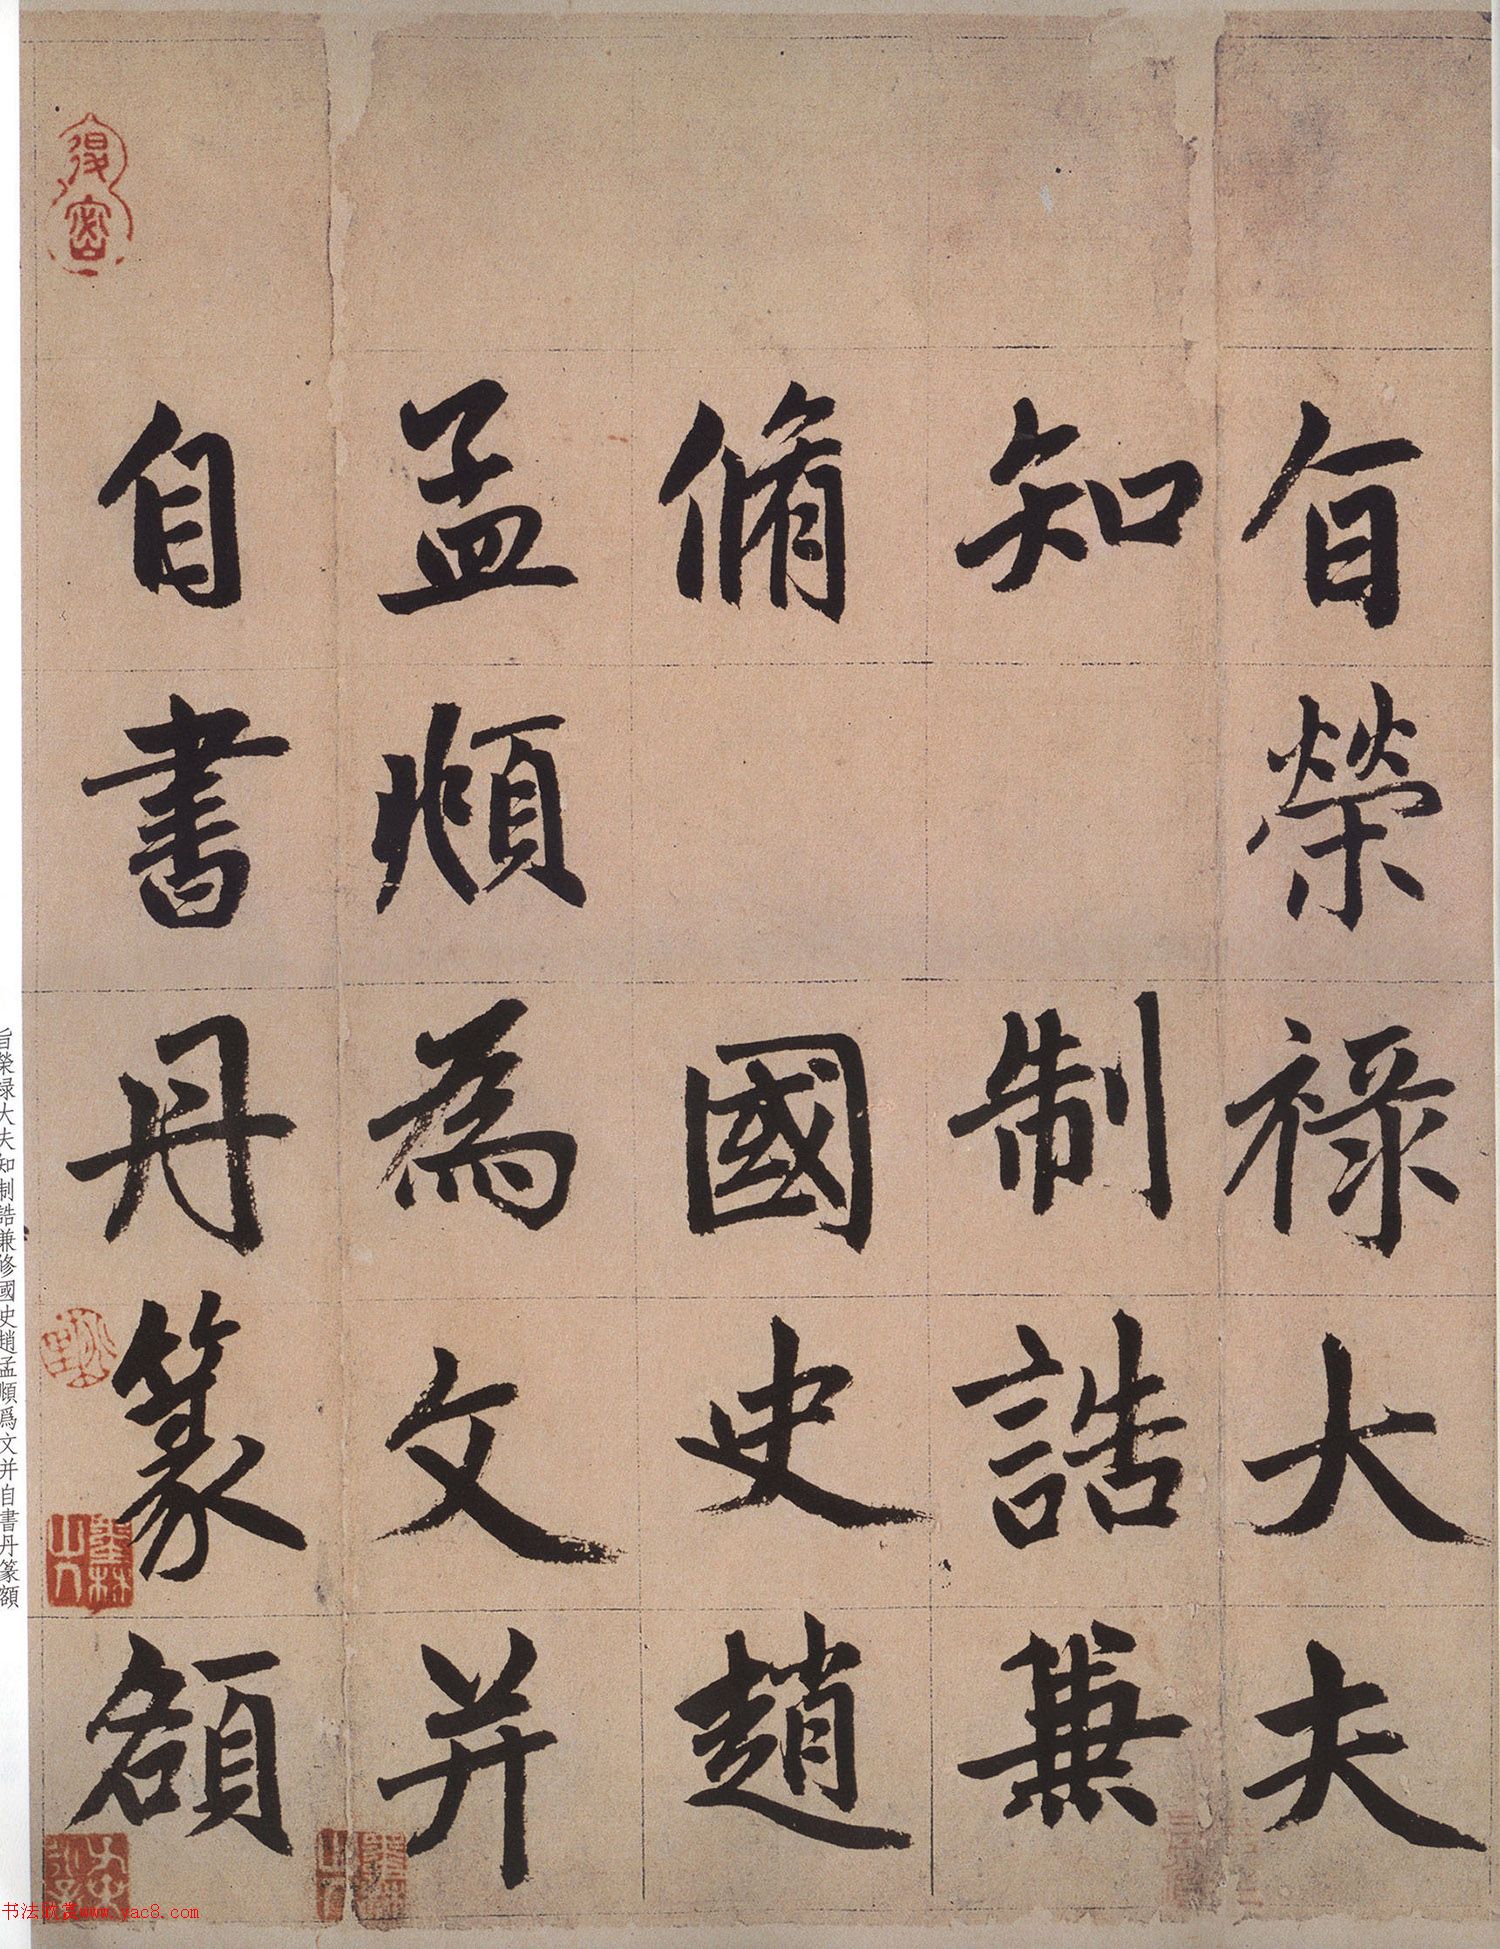 旨榮禄大夫
知制誥兼
脩國史趙
孟頫為文并
自書丹篆額
旨榮禄大夫知制誥兼修國史趙孟頫爲文并自書丹篆額
书法欣赏www.yac8.com